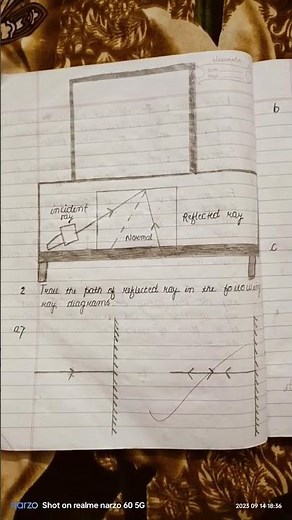 b
incident
ray
Reflected ray
Normal
C
2 Trace the path of reflected ray in the following
ray diagrams.
a7
narzo Shot on realme narzo 60 5G
2023 09 14 18:36